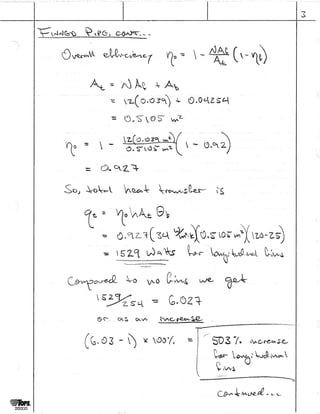 3
FINNED PIPE, CONT...
Overall efficiency η₀ = 1 - NAf/At (1-ηf)
At = NAf + Ab
= 12(0.039) + 0.04254
= 0.5105 m²
η₀ = 1 - 12(0.039 m²)/0.5105 m² (1 - 0.92)
= 0.927
So, total heat transfer is
qt = η₀hAtθb
= 0.927(34 W/m²K)(0.5105 m²)(120-25)
= 1529 Watts for longitudinal fins
Compared to no fins we get
1529/254 = 6.027
or as an increase
(6.03 - 1) x 100% = 503% increase
for longitudinal
fins
Continued...
TOPS